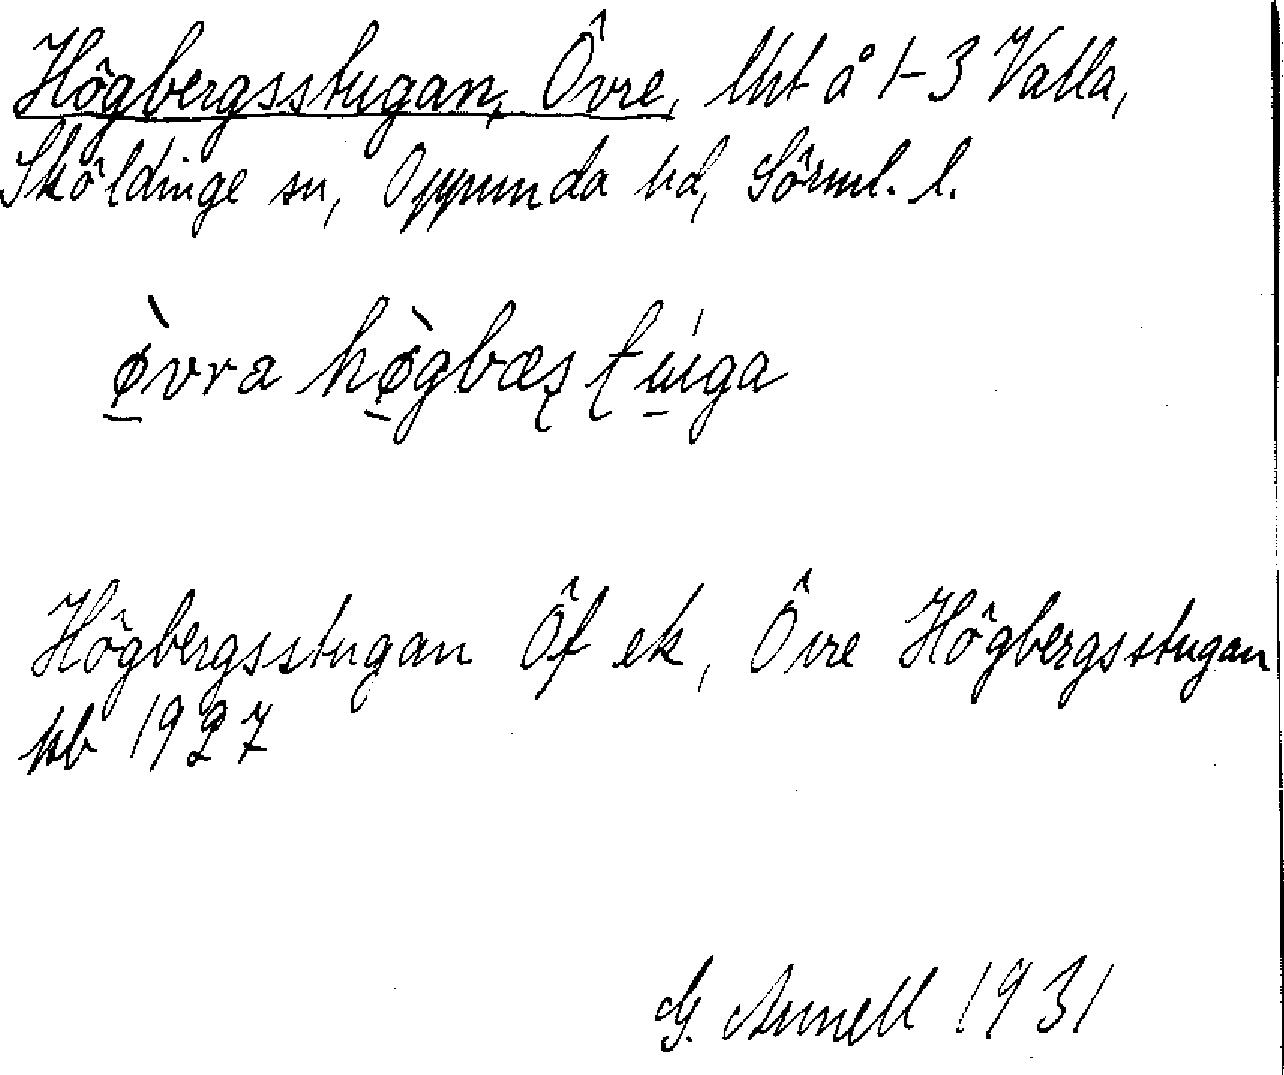 Högbergsstugan, Övre, lht å 1-3 Valla,
Sköldinge sn, Oppunda hd, Sörml. l.
ø̀vra hø̀gbæʂʈúga
Högbergsstugan Öf ek, Övre Högbergsstugan
kb 1927
G. Annell 1931